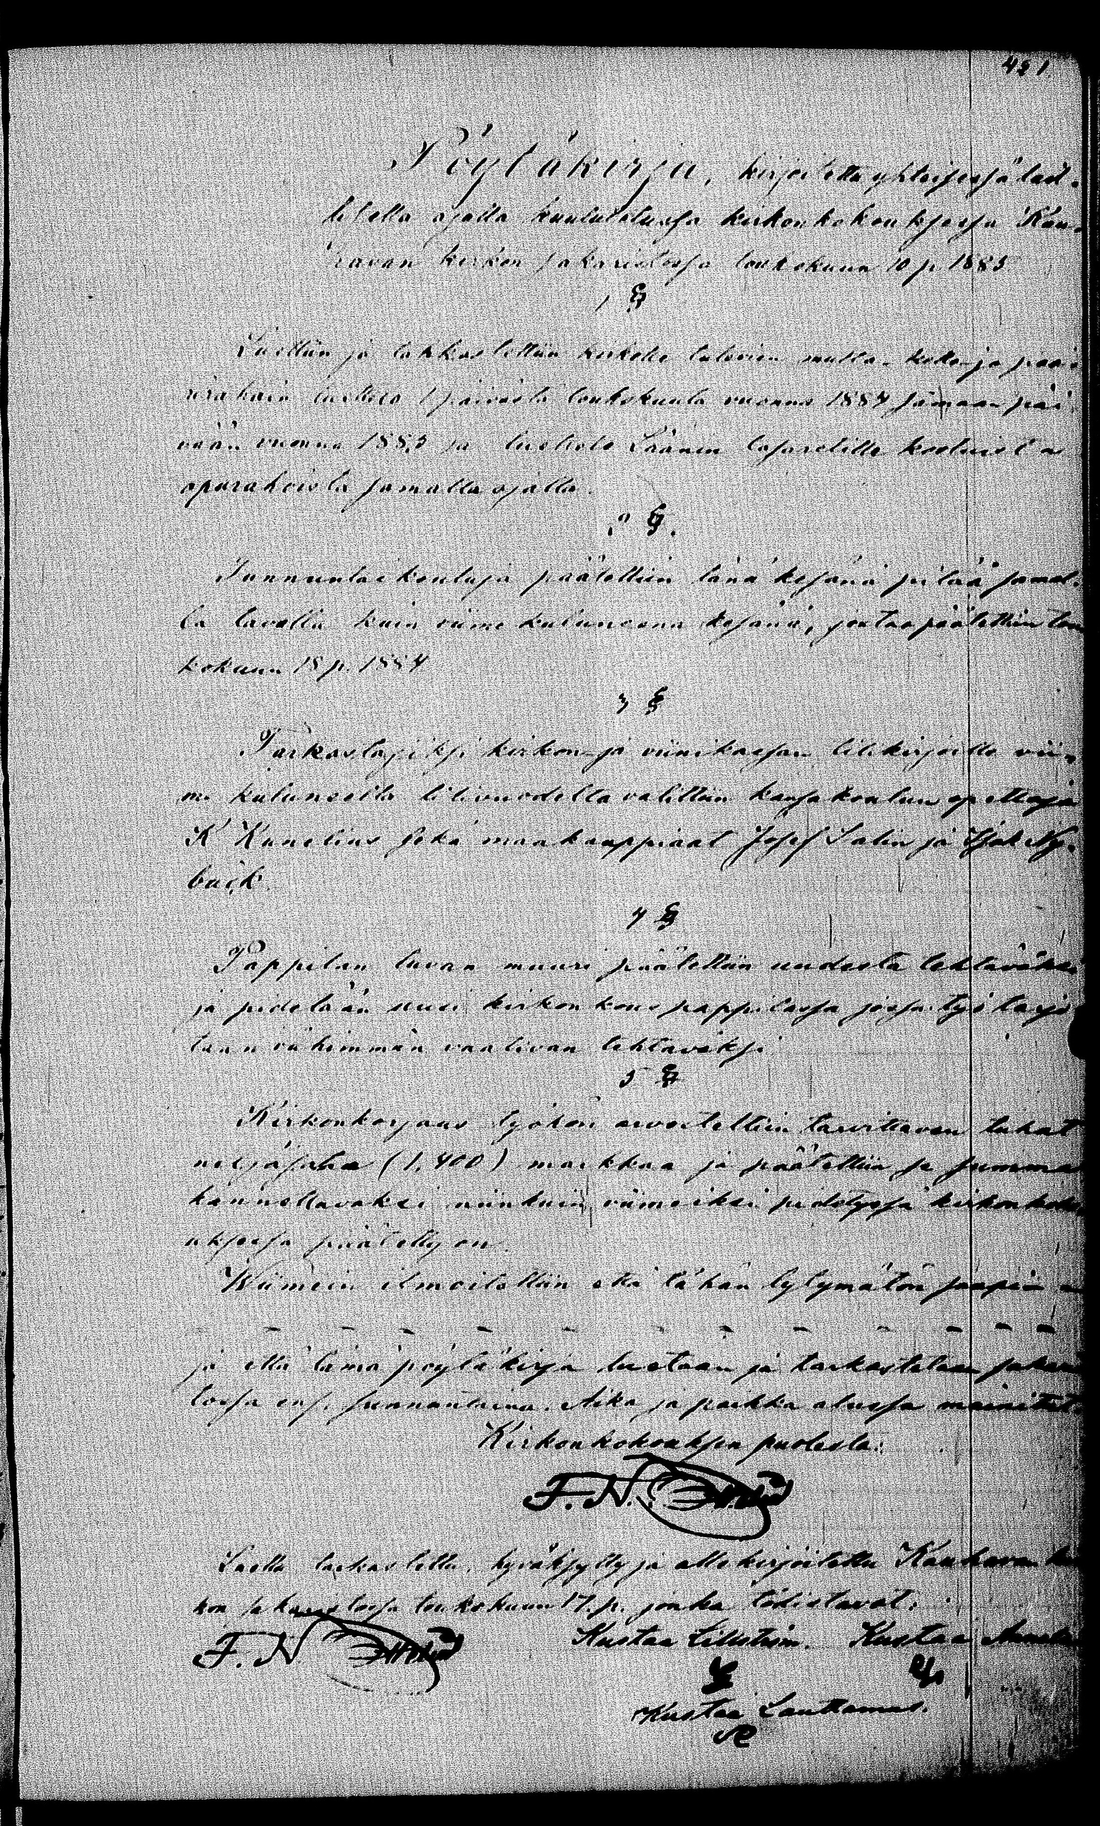 421
Pöytäkirja, kirjoitettu yhteisessä lail-
lisella ajalla kuulutetussa kirkonkokouksessa Kau-
havan kirkon sakaristossa toukokuun 10 p. 1885.
1 §
Luettiin ja takkastettiin kirkolle tulevien multa- kello- ja paa-
rirahain luettelo 1 päivästä toukokuuta vuonna 1884 samaan päi
vään vuonna 1885 ja luettelo Läänin lasaretille kootuista
apurahoista samalla ajalla.
2 §.
Sunnuntaikouluja päätettiin tänä kesänä pitää samal-
la tavalla kuin viime kuluneena kesänä, josta päätettiin tou
kokuun 18 p. 1884
3 §
Tarkastajiksi kirkon- ja viinikassan tilikirjoille vii-
me kuluneelta tilivuodelta valittiin kansakoulun opettaja
K Kunelius sekä maakauppiaat Josef Salin ja Isak Ny-
back.
4 §
Pappilan tuvan muuri päätettiin uudesta tehtäväksi
ja pidetään uusi kirkon kous pappilassa jossa työ tarjo
taan vähimmän vaativan tehtäväksi.
5 §
Kirkonkorjaus työhön arvosteltiin tarvittavan tuhat
neljäsataa (1,400) markkaa ja päätettiin se summa
kannettavaksi niinkuin viimeiksi pidetyssä kirkonkoko
uksessa päätetty on.
Wiimein ilmoitettiin että tähän tytymätön saapi
ja että tämä pöytäkirja luetaan ja tarkastetaan sakari
tossa ens. sunnuntaina. Aika ja paikka alussa mainitut.
Kirkonkokouksen puolesta:
F. N.
Luettu tarkastettu, hyväksytty ja allekirjoitettu Kauhavan kir
kon sakaristossa toukokuun 17. p. jonka todistavat:
F. N. Kustaa Lillström. Kustaa
Kustaa Lauttamus.